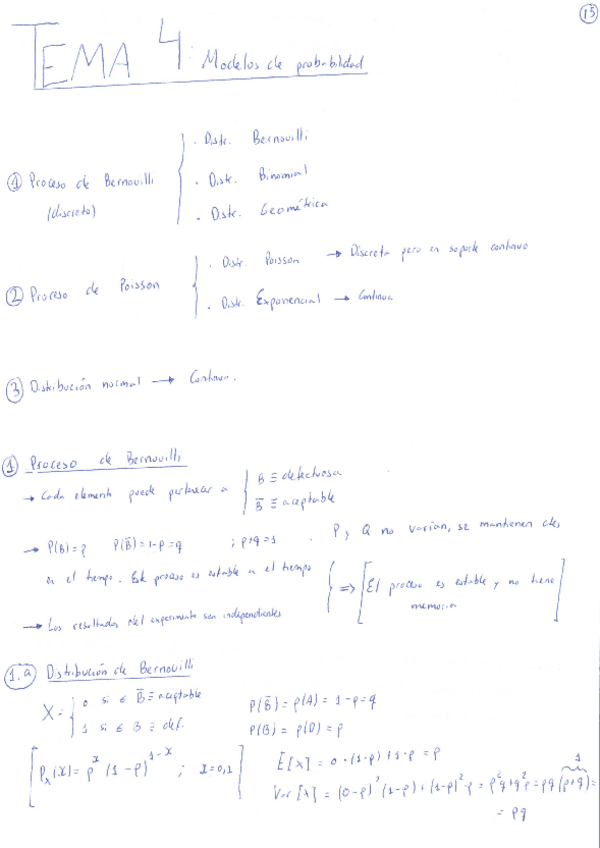 15
TEMA 4: Modelos de probabilidad
① Proceso de Bernouilli (discreto)
· Distr. Bernouilli
· Distr. Binomial
· Distr. Geométrica
② Proceso de Poisson
· Distr. Poisson → Discreta pero en soporte continuo
· Distr. Exponencial → Continua
③ Distribución normal → Continua.
① Proceso de Bernouilli
→ Cada elemento puede pertenecer a
B ≡ defectuosa
B̅ ≡ aceptable
→ P(B)=p P(B̅)=1-p=q ; p+q=1 . P y Q no varían, se mantienen ctes
en el tiempo. Este proceso es estable en el tiempo
→ Los resultados del experimento son independientes
⇒ [El proceso es estable y no tiene memoria]
1.a Distribución de Bernouilli
X = { 0 si ∈ B̅ ≡ aceptable
1 si ∈ B ≡ def.
P(B̅) = P(A) = 1-p = q
P(B) = P(D) = p
[Pₓ(x) = pˣ (1-p)¹⁻ˣ ; x=0,1]
E[x] = 0·(1-p)+1·p = p
Var[x] = (0-p)²(1-p)+(1-p)²·p = p²q+q²p = pq(p+q) =
1
= pq